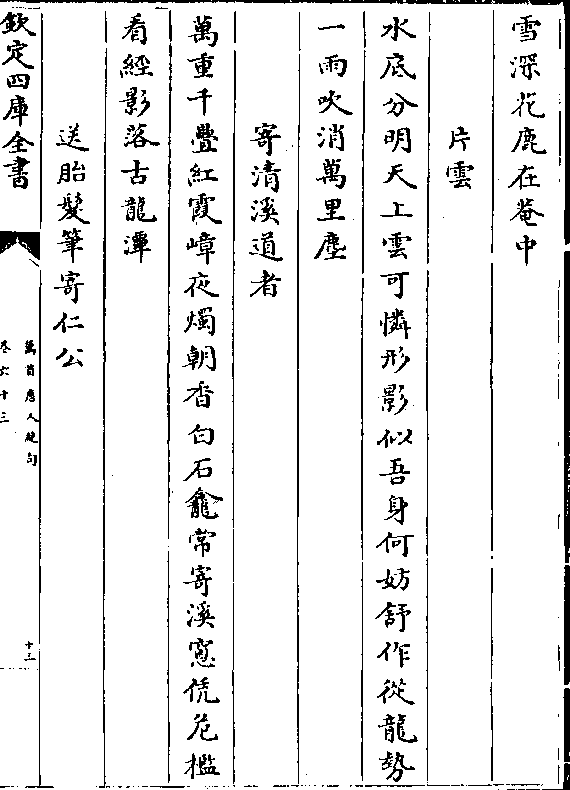 雪深花鹿在菴中
片雲
水底分明天上雲可憐形影似吾身何妨舒作從龍勢
一雨吹消萬里塵
寄清溪道者
萬重千疊紅霞嶂夜燭朝香白石龕常寄溪窻凭危檻
看經影落古龍潭
送胎髮筆寄仁公
欽定四庫全書
萬首唐人絶句
卷六十三
十二